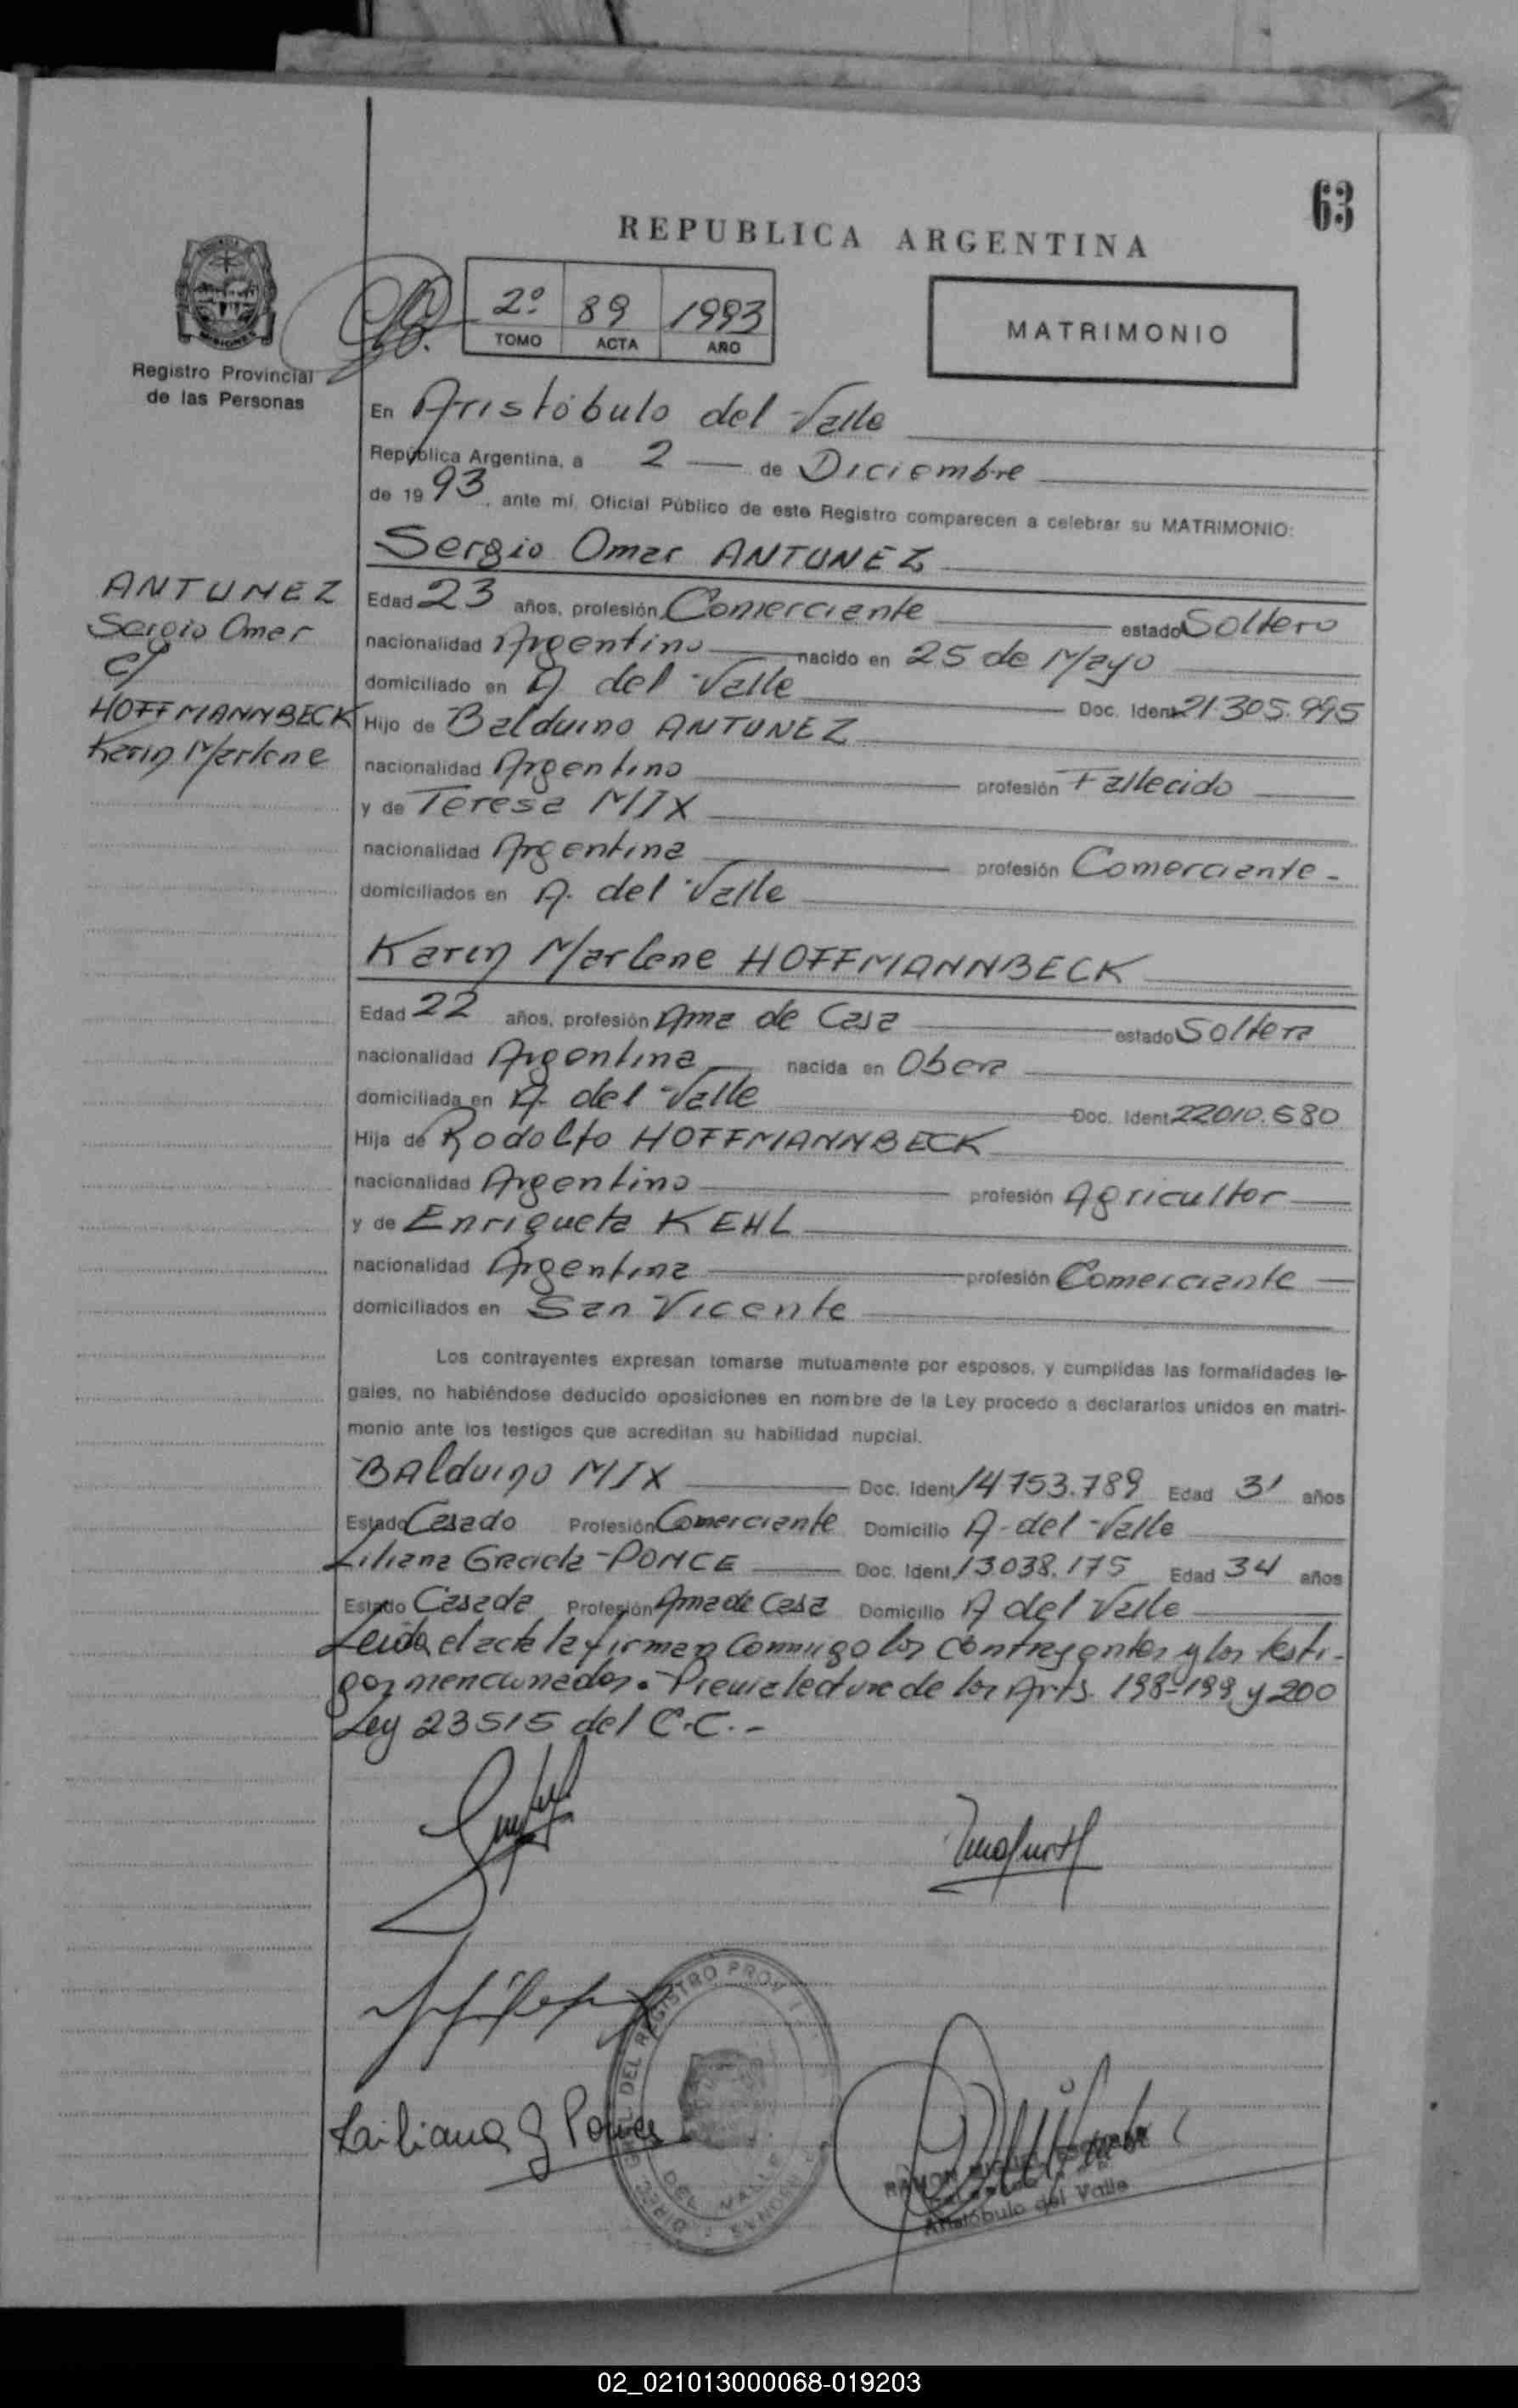 63
REPUBLICA ARGENTINA
MISIONES
Registro Provincial
de las Personas
2º 89 1993
TOMO ACTA AÑO
MATRIMONIO
En Aristóbulo del Valle
República Argentina, a 2 — de Diciembre
de 19 93, ante mí, Oficial Público de este Registro comparecen a celebrar su MATRIMONIO:
Sergio Omar ANTUNEZ
ANTUNEZ
Sergio Omar
c/
HOFFMANNBECK
Karin Marlene
Edad 23 años, profesión Comerciante estado Soltero
nacionalidad Argentino nacido en 25 de Mayo
domiciliado en A. del Valle Doc. Ident 21.305.995
Hijo de Balduino ANTUNEZ
nacionalidad Argentino profesión Fallecido
y de Teresa MIX
nacionalidad Argentina profesión Comerciante -
domiciliados en A. del Valle
Karin Marlene HOFFMANNBECK
Edad 22 años, profesión Ama de Casa estado Soltera
nacionalidad Argentina nacida en Obera
domiciliada en A. del Valle Doc. Ident 22010.680
Hija de Rodolfo HOFFMANNBECK
nacionalidad Argentino profesión Agricultor
y de Enriqueta KEHL
nacionalidad Argentina profesión Comerciante
domiciliados en San Vicente
Los contrayentes expresan tomarse mutuamente por esposos, y cumplidas las formalidades le-
gales, no habiéndose deducido oposiciones en nombre de la Ley procedo a declararlos unidos en matri-
monio ante los testigos que acreditan su habilidad nupcial.
BAlduino MIX Doc. Ident 14753.789 Edad 31 años
Estado Casado Profesión Comerciante Domicilio A-del-Valle
Liliana Graciela-PONCE Doc. Ident 13.038.175 Edad 34 años
Estado Casada Profesión Ama de Casa Domicilio A del Valle
Leida el acta la firman Conmigo los contrayentes y los testi-
gos mencionados. Previa lectura de los Arts. 198-199 y 200
Ley 23515 del C.C.-
Liliana G Ponce
DEL REGISTRO PROV
DEL VALLE
RAMON
Aristóbulo del Valle
02_021013000068-019203